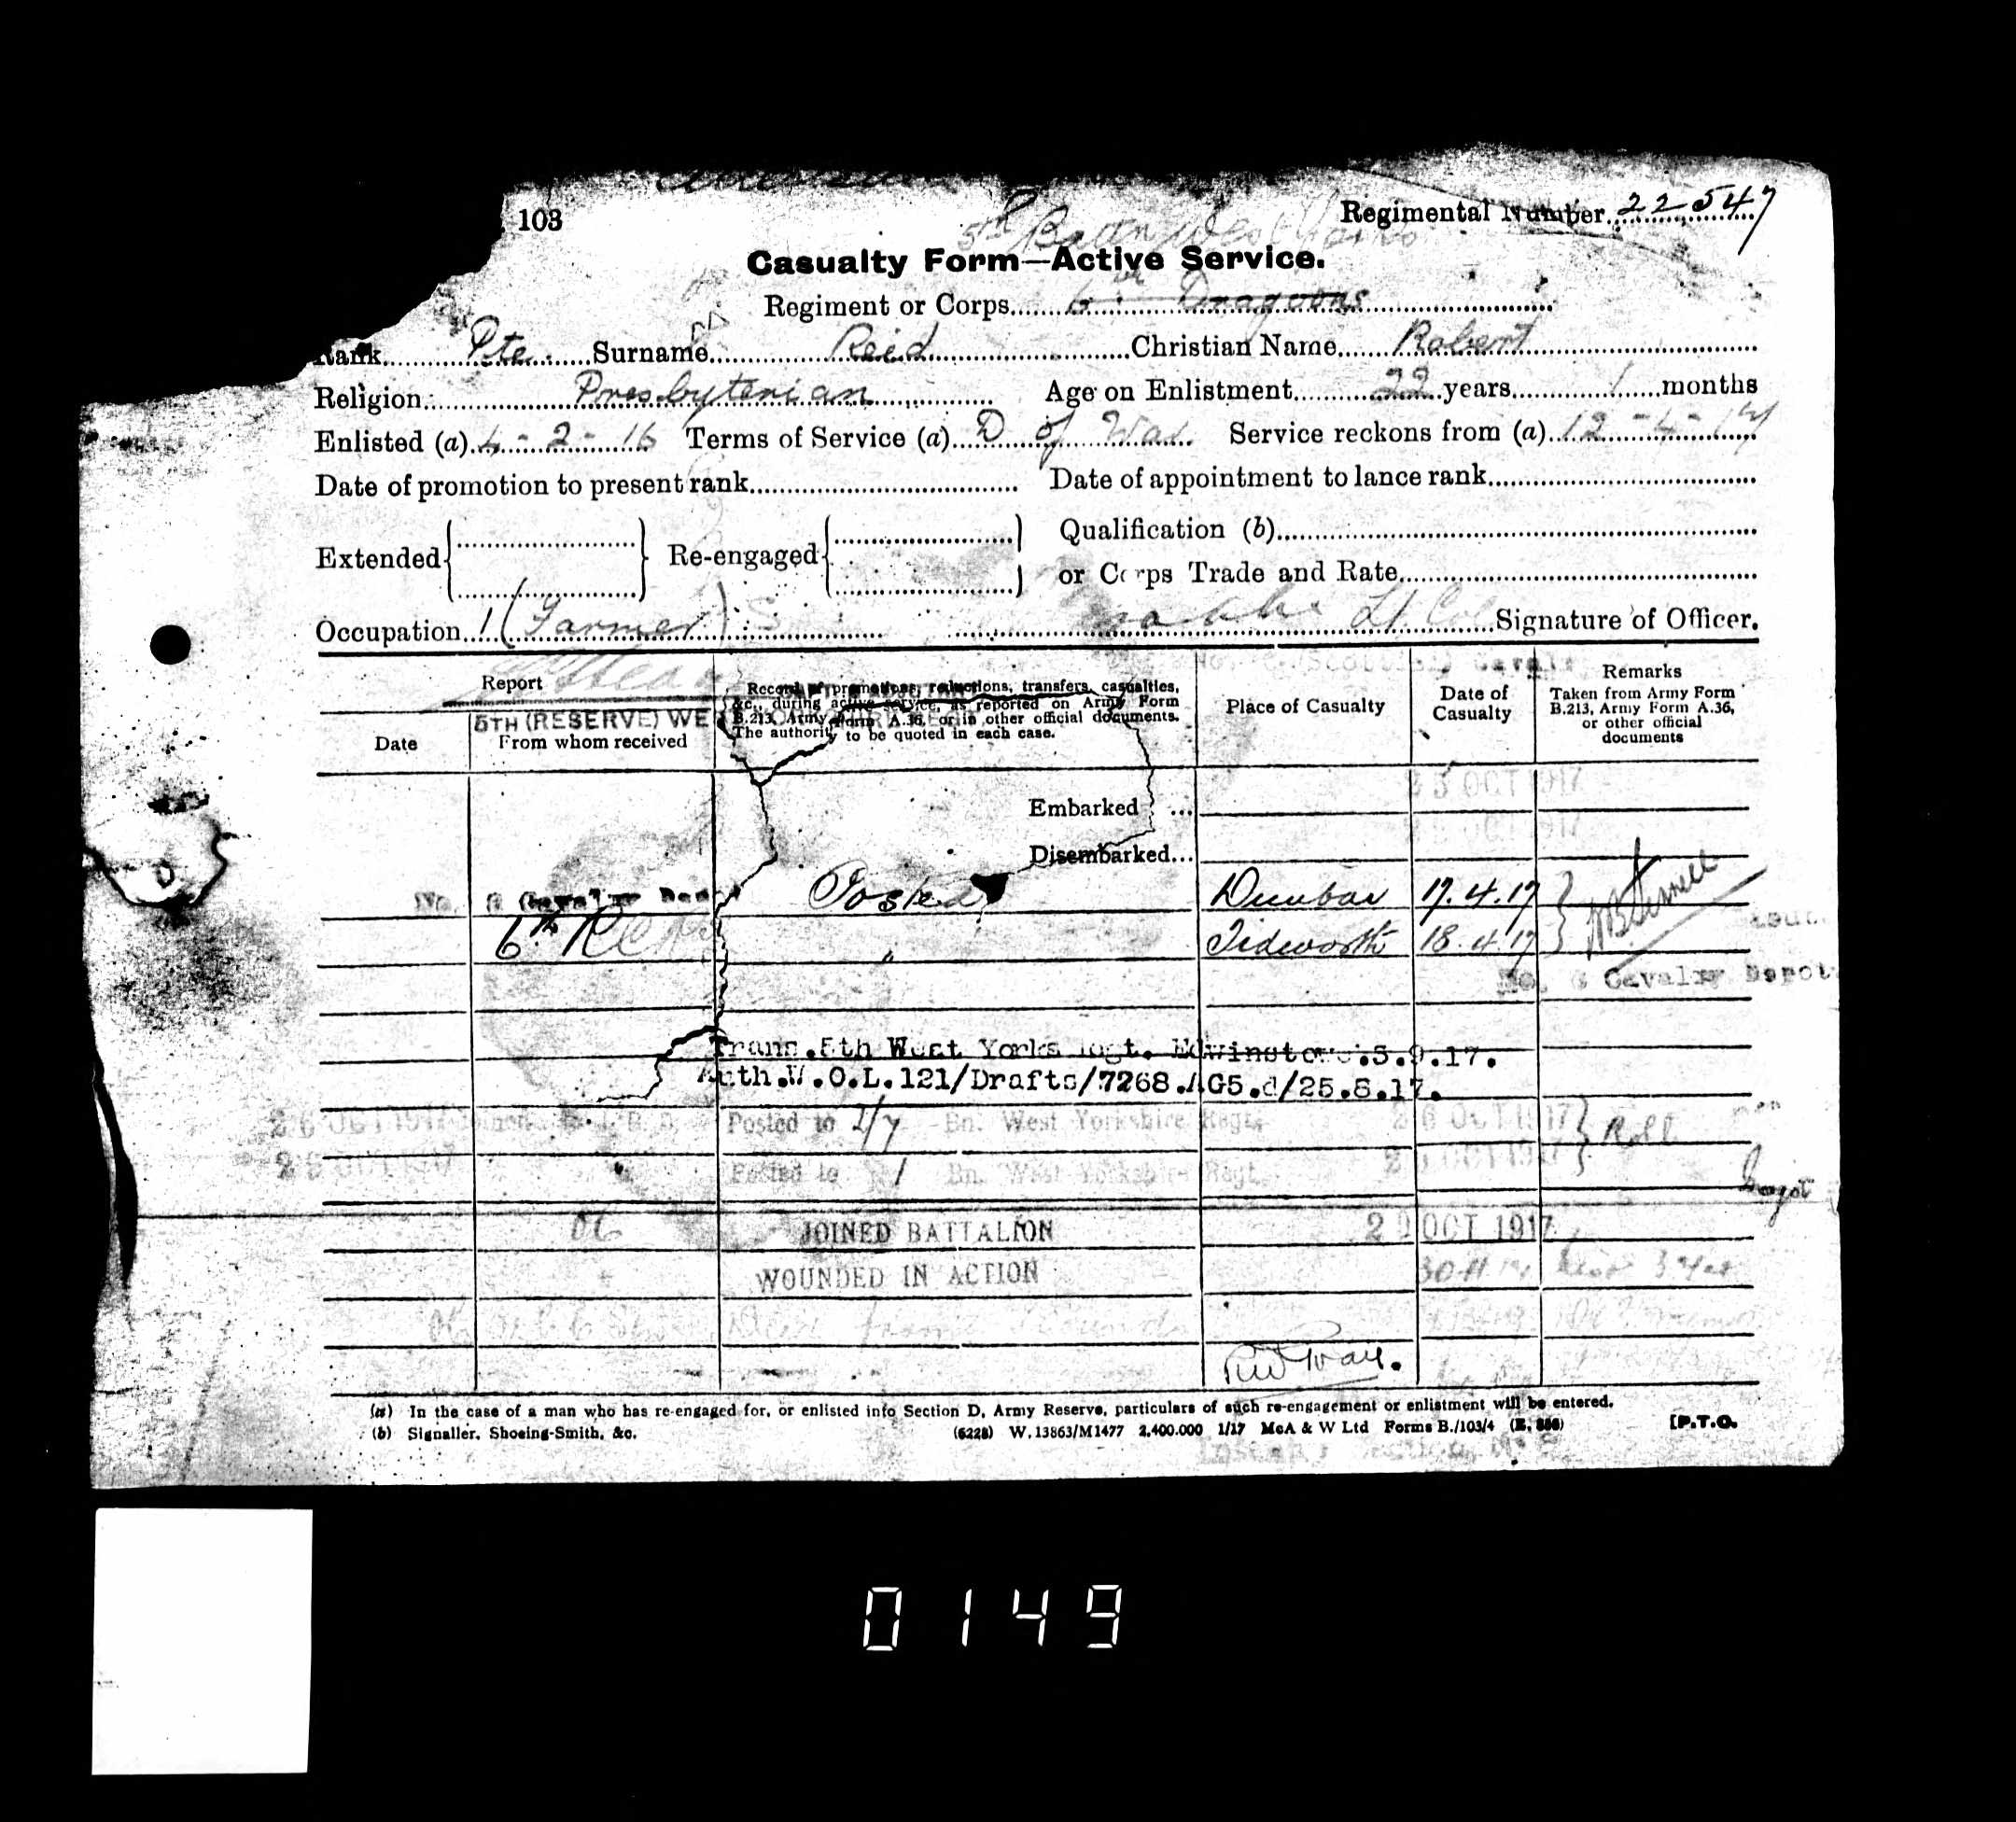 103
Regimental Number 22547
5th Battn West Yorks
Casualty Form—Active Service.
Regiment or Corps 6th Dragoons
Rank Pte. Surname Reid Christian Name Robert
Religion Presbyterian Age on Enlistment 22 years 1 months
Enlisted (a) 4-2-16 Terms of Service (a) D of War. Service reckons from (a) 12-4-17
Date of promotion to present rank Date of appointment to lance rank
Extended Re-engaged Qualification (b)
or Corps Trade and Rate
Occupation 1 (Farmer) Lt. Col Signature of Officer.
Report
Date
5TH (RESERVE) WE
From whom received
Record of promotions, reductions, transfers, casualties,
&c., during active service, as reported on Army Form
B.213, Army Form A.36, or in other official documents.
The authority to be quoted in each case.
Place of Casualty
Date of
Casualty
Remarks
Taken from Army Form
B.213, Army Form A.36,
or other official
documents
25 OCT 1917
Embarked ...
Disembarked...
Posted Dunbar 17.4.17
6th " Tidworth 18.4.17
Cavalry Depot
Trans.5th West Yorks Regt. .5.9.17.
Auth.W.O.L.121/Drafts/7268.AG5.d/25.8.17.
26 OCT 1917 Posted to 2/7 Bn. West Yorkshire Regt. 26 OCT 1917 Roll
Posted to 1 Bn. West Yorkshire Regt. OCT 1917
OC JOINED BATTALION 29 OCT 1917
WOUNDED IN ACTION 30.11.17
(a) In the case of a man who has re-engaged for, or enlisted into Section D, Army Reserve, particulars of such re-engagement or enlistment will be entered.
(b) Signaller, Shoeing-Smith, &c. (6228) W.13863/M1477 2,400.000 1/17 McA & W Ltd Forms B./103/4 [P.T.O.
0149